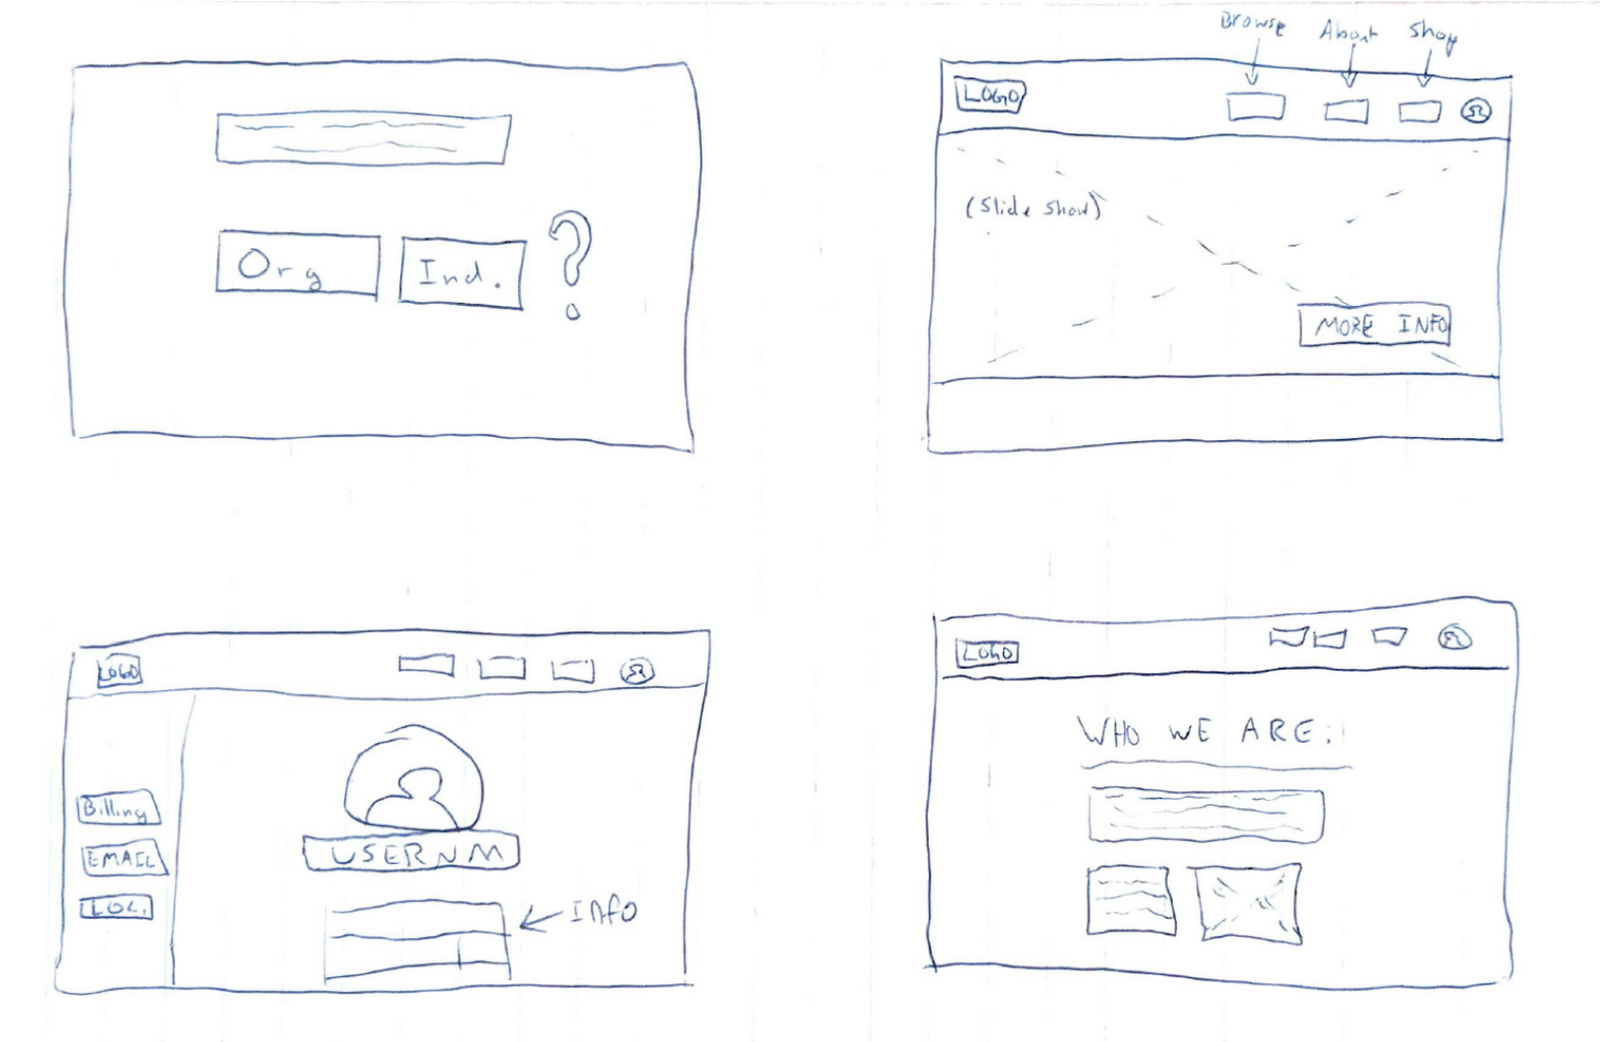 Org
Ind.
?
Browse
About
Shop
LOGO
(Slide Show)
MORE INFO
LOGO
Billing
EMAIL
LOC.
USERNM
Info
LOGO
WHO WE ARE: